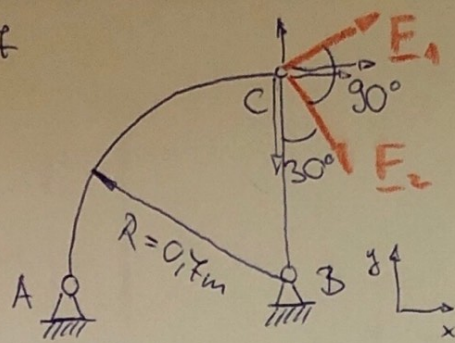 F₁
C
90°
30°
F₂
R=0,7m
A
B
y
x